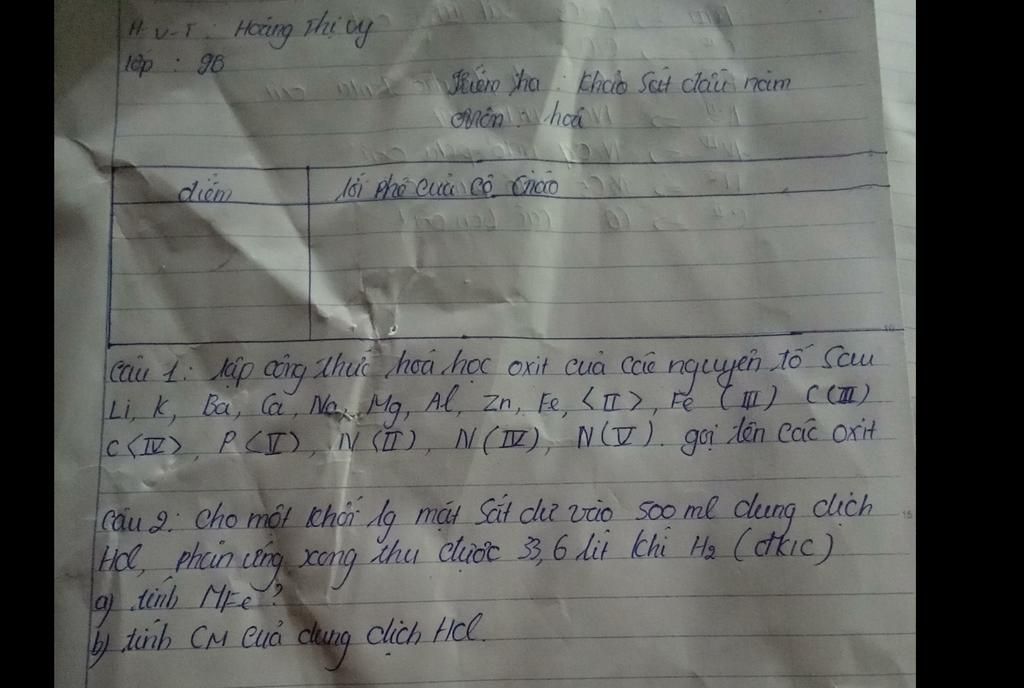 H-V-T: Hoàng Thị Vy
lớp : 9B
Kiểm tra : Khảo sát đầu năm
Môn : hoá
điểm
lời phê của cô giáo
Câu 1: lập công thức hoá học oxit của các nguyên tố sau
Li, K, Ba, Ca, Na, Mg, Al, Zn, Fe, <II>, Fe (III) C (III)
C <IV>, P <V>, N (II), N (IV), N (V). gọi tên các oxit
Câu 2: Cho một khối lg mạt sắt dư vào 500 ml dung dịch
Hcl, phản ứng xong thu được 33,6 lít khí H2 (đktc)
a) tính MFe?
b) tính CM của dung dịch Hcl.